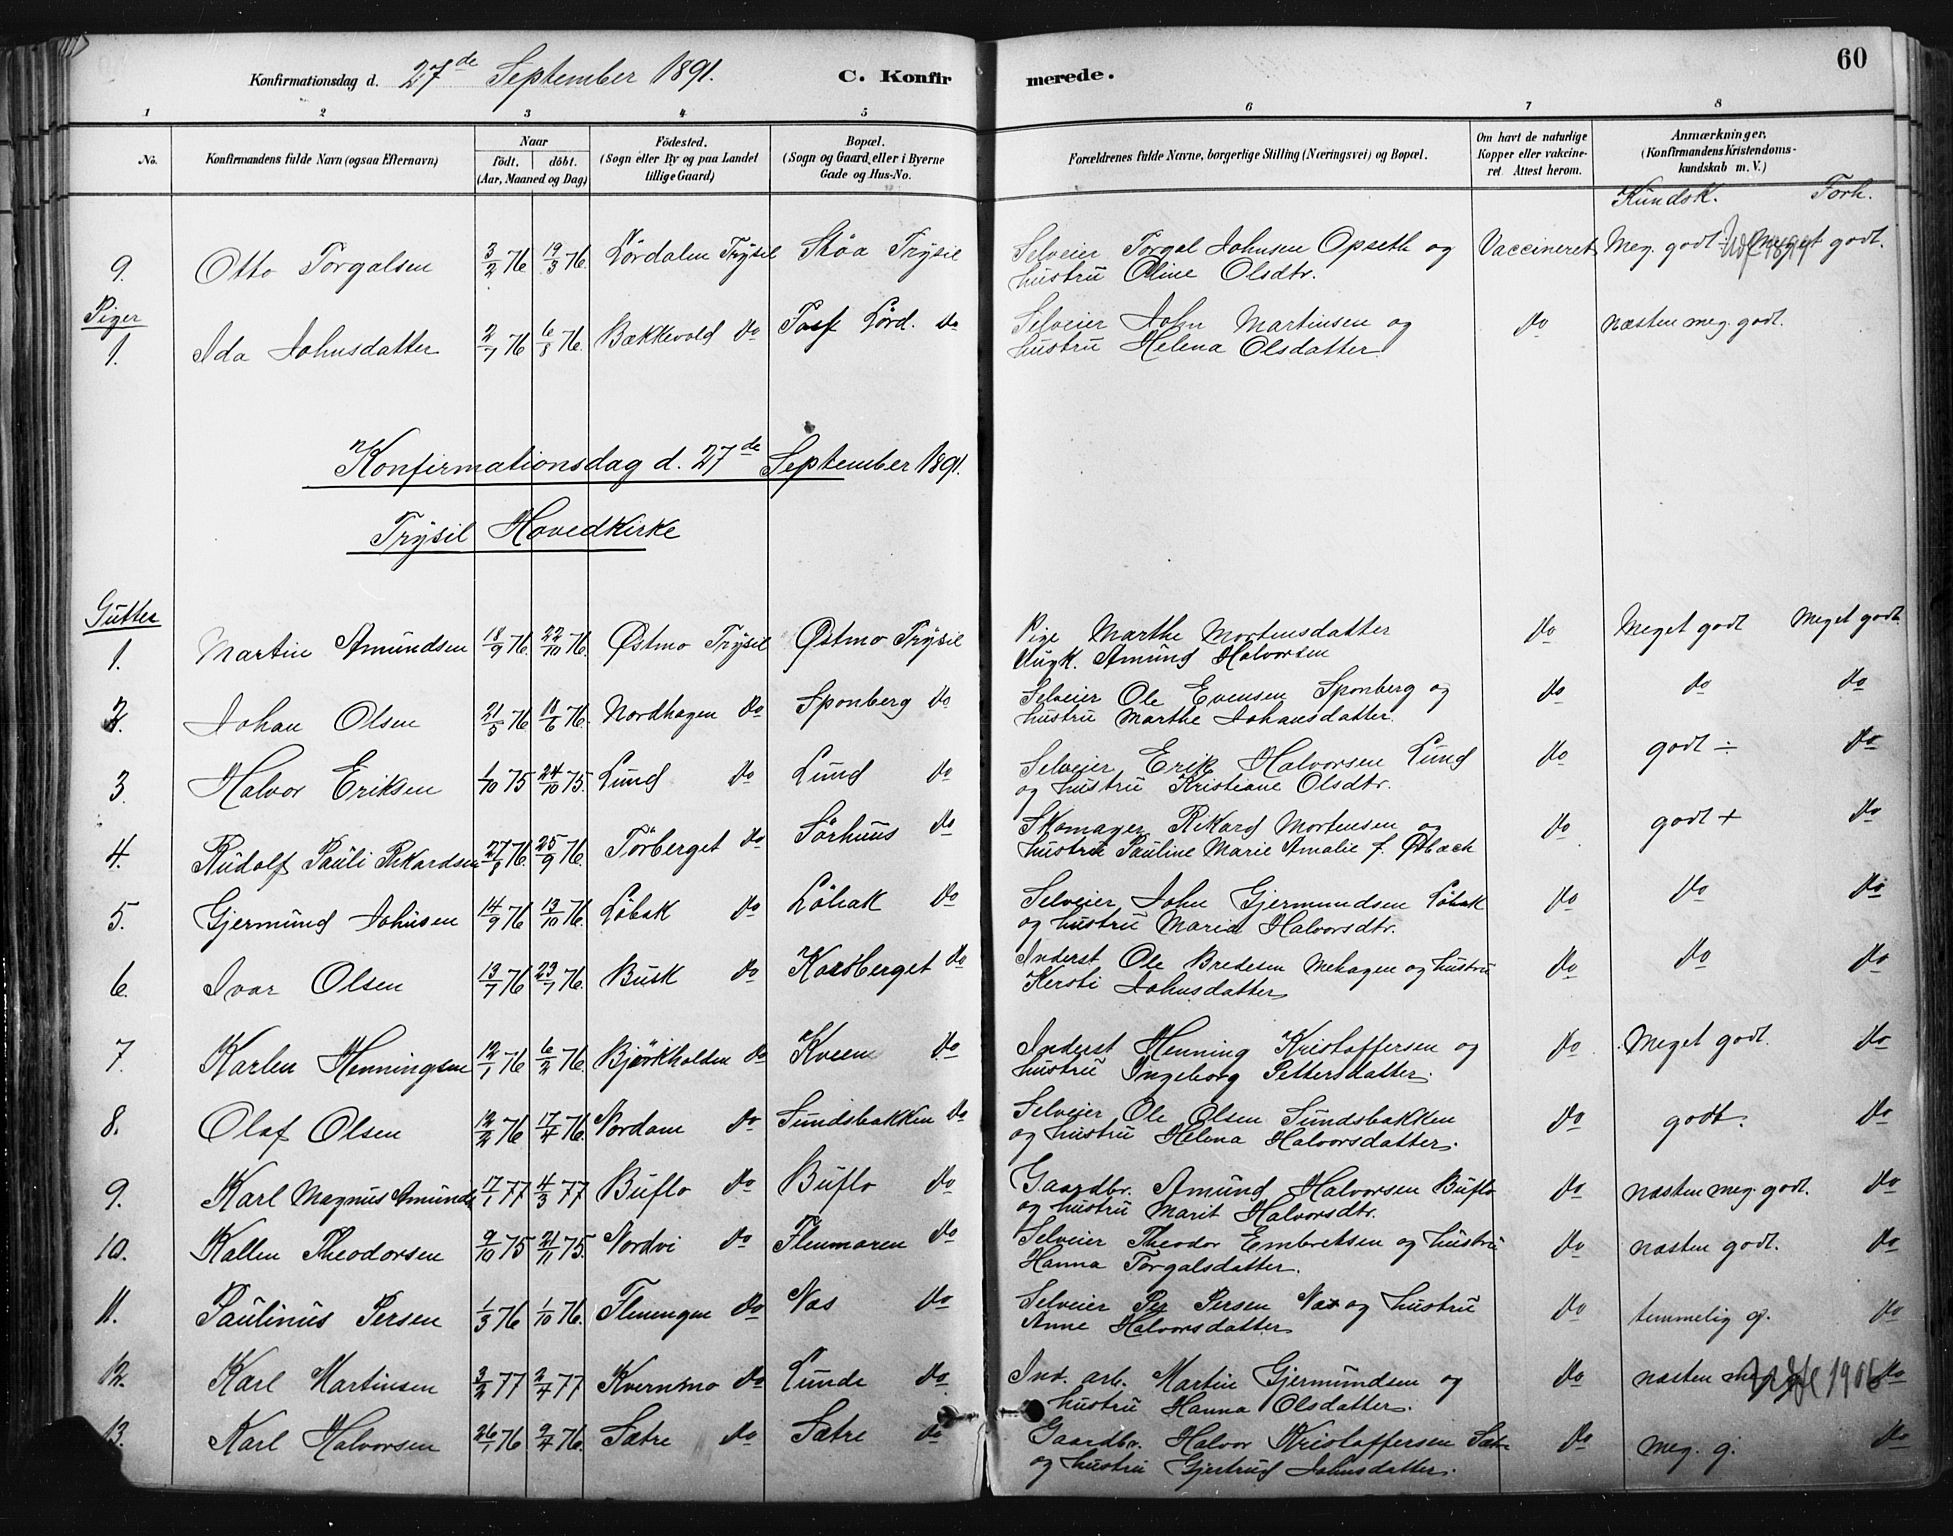 60
Konfirmationsdag d. 27de September 1891. C. Konfirmerede.
1 2 3 4 5 6 7 8
No. Konfirmandens fulde Navn (ogsaa Efternavn) Naar födt, döbt. (Aar, Maaned og Dag) Födested. (Sogn eller By og paa Landet tillige Gaard) Bopæl. (Sogn og Gaard, eller i Byerne Gade og Hus-No. Forældrenes fulde Navne, borgerlige Stilling (Næringsvei) og Bopæl. Om havt de naturlige Kopper eller vakcineret Attest herom. Anmærkninger. (Konfirmandens Kristendomskundskab m. V.)
Kundsk. Forh.
9. Otto Torgalsen 3/2 76 19/3 76 Lördalen Trysil Støa Trysil Selveier Torgal Johnsen Opseth og Vaccineret Meg. godt ÷ meget godt.
hustru Oline Olsdtr.
Piger
1. Ida Johnsdatter 2/7 76 6/8 76. Bækkevold do Lörd. do Selveier John Martinsen og do næsten meg. godt.
hustru Helena Olsdatter
Konfirmationsdag d. 27de September 1891.
Trysil Hovedkirke
Gutter
1. Martin Amundsen 18/9 76. 22/10 76. Østmo Trysil Østmo Trysil Pige Marthe Mortensdatter do Meget godt Meget godt.
Ungk. Amund Halvorsen
2. Johan Olsen 21/5 76 18/6 76. Nordhagen do Sponberg do Selveier Ole Evensen Sponberg og do do do
hustru Marthe Johansdatter.
3. Halvor Eriksen 1/10 75 24/10 75. Lund do Lund do Selveier Erik Halvorsen Lund do godt ÷ do
og hustru Kristiane Olsdtr.
4. Rudolf Pauli Rikardsen 27/8 76. 25/9 76. Törberget do Sörhuus do Skomager Rikard Mortensen og do godt + do
hustru Pauline Marie Amalie f. Ødbæch
5. Gjermund Johnsen 14/9 76 13/10 76. Löbak do Löbak do Selveier John Gjermundsen Löbak do do do
og hustru Maria Halvorsdtr.
6. Ivar Olsen 13/7 76 23/7 76. Busk do Korsberget do Inderst Ole Bredesen Mehagen og hustru do do do
Kersti Johnsdatter
7. Karlen Henningsen 12/1 76 6/2 76. Bjørkholden do Kveen do Inderst Henning Kristoffersen og do Meget godt. do
hustru Ingeborg Pettersdatter.
8. Olaf Olsen 12/2 76 17/4 76. Nordane do Sundsbakken do Selveier Ole Olsen Sundsbakken do godt. do
og hustru Helena Halvorsdatter.
9. Karl Magnus Amunds 17/1 77 4/3 77 Buflo do Buflo do Gaardbr. Amund Halvorsen Buflo do næsten meg. godt. do
og hustru Marit Halvorsdtr.
10. Kallen Theodorsen 9/10 75 21/11 75. Nordvi do Flenmoren do Selveier Theodor Embretsen og hustru do næsten godt. do
Hanna Torgalsdatter.
11. Paulinus Persen 1/3 76 1/10 76. Flenmgen do Næs do Selveier Per Persen Næs og hustru do temmelig g. do
Anne Halvorsdatter
12. Karl Martinsen 3/2 77 2/4 77 Kvernmo do Lunde do Ind. arb. Martin Gjermundsen og do næsten meg. 1906 do
hustru Hanna Olsdatter.
13. Karl Halvorsen 26/1 76 9/4 76. Sætre do Sætre do Gaardbr. Halvor Kristoffersen Sætr do meg. g. do
og hustru Gjertrud Johnsdatter.